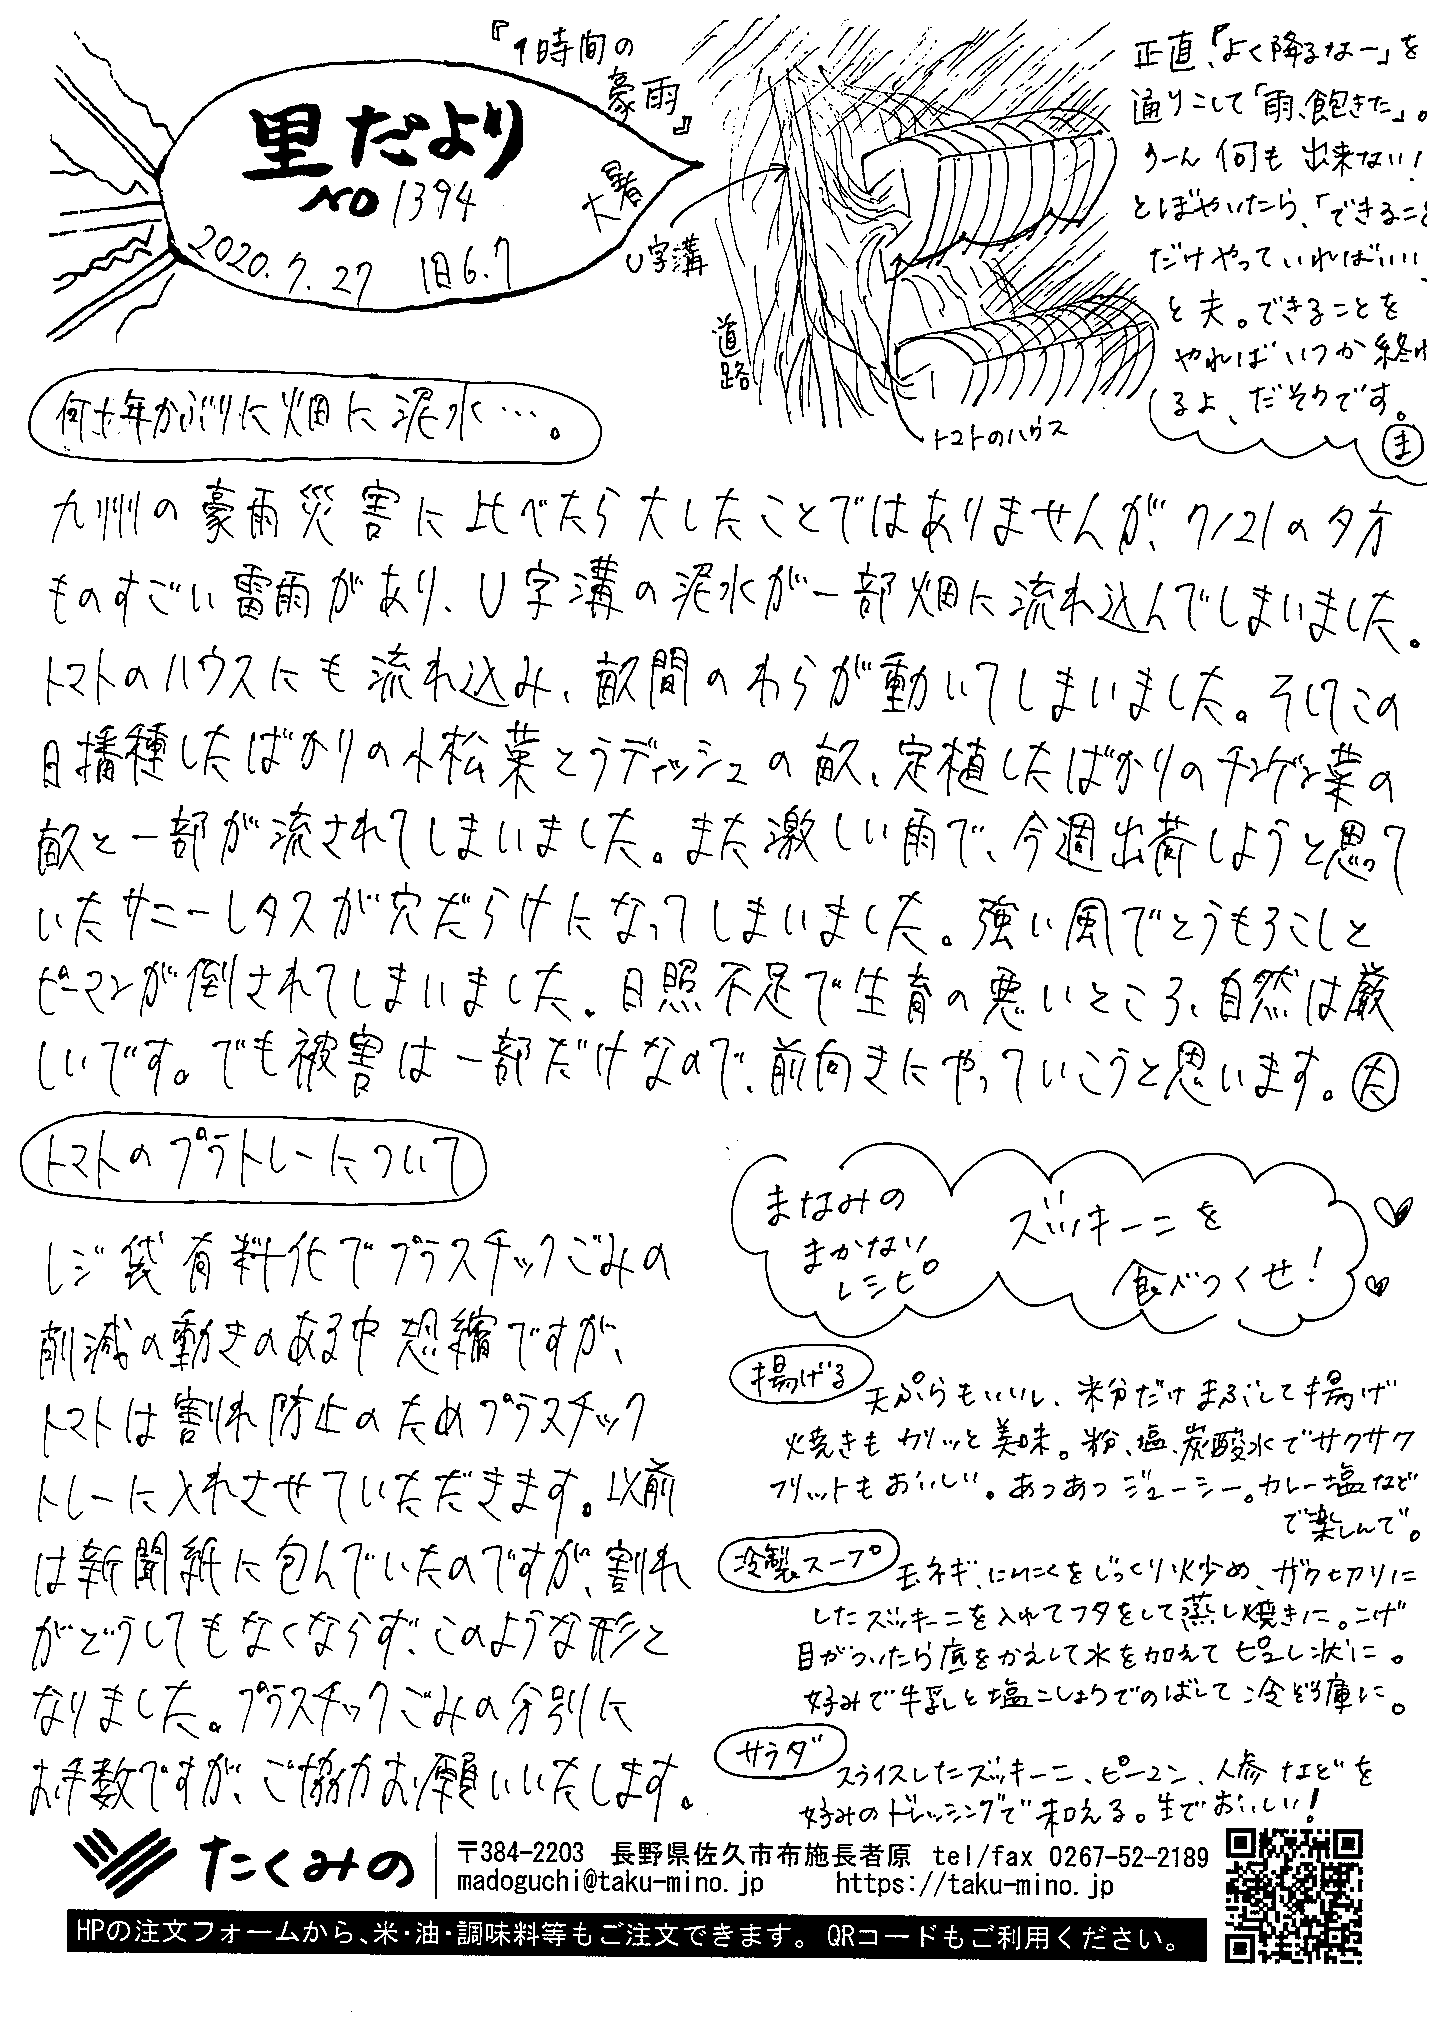 里だより
NO 1394
2020.7.27 旧6.7
大暑
『1時間の
豪雨』
U字溝
道路
トマトのハウス
正直、「よく降るなー」を
通りこして「雨、飽きた」。
うーん 何も 出来ない!
とぼやいたら、「できること
だけやっていればいい、
と夫。できることを
やれば いつか 終わ
るよ、だそうです。
ま
何十年かぶりに畑に泥水…。
九州の豪雨災害に比べたら大したことではありませんが、7/21の夕方
ものすごい雷雨があり、U字溝の泥水が一部畑に流れ込んでしまいました。
トマトのハウスにも流れ込み、畝間のわらが動いてしまいました。そしてこの
日播種したばかりの小松菜とラディッシュの畝、定植したばかりのチンゲン菜の
畝と一部が流されてしまいました。また激しい雨で、今週出荷しようと思って
いたサニーレタスが穴だらけになってしまいました。強い風でとうもろこしと
ピーマンが倒されてしまいました。日照不足で生育の悪いところ、自然は厳
しいです。でも被害は一部だけなので、前向きにやっていこうと思います。
トマトのプラトレーについて
レジ袋有料化でプラスチックごみの
削減の動きのある中恐縮ですが、
トマトは割れ防止のためプラスチック
トレーに入れさせていただきます。以前
は新聞紙に包んでいたのですが、割れ
がどうしてもなくならず、このような形と
なりました。プラスチックごみの分別に
お手数ですが、ご協力お願いいたします。
まなみの
まかない
レシピ
ズッキーニを
食べつくせ!
揚げる
天ぷらもいいし、米粉だけまぶして揚げ
焼きもカリッと美味。粉、塩、炭酸水でサクサク
フリットもおいしい。あつあつジューシー。カレー塩など
で楽しんで。
冷製スープ
玉ネギ、にんにくをじっくり炒め、ザク切りに
したズッキーニを入れてフタをして蒸し焼きに。こげ
目がついたら底をかえして水を加えてピューレ状に。
好みで牛乳と塩こしょうでのばして冷ぞう庫に。
サラダ
スライスしたズッキーニ、ピーマン、人参などを
好みのドレッシングで和える。生でおいしい!
たくみの
〒384-2203 長野県佐久市布施長者原 tel/fax 0267-52-2189
madoguchi@taku-mino.jp https://taku-mino.jp
HPの注文フォームから、米・油・調味料等もご注文できます。QRコードもご利用ください。